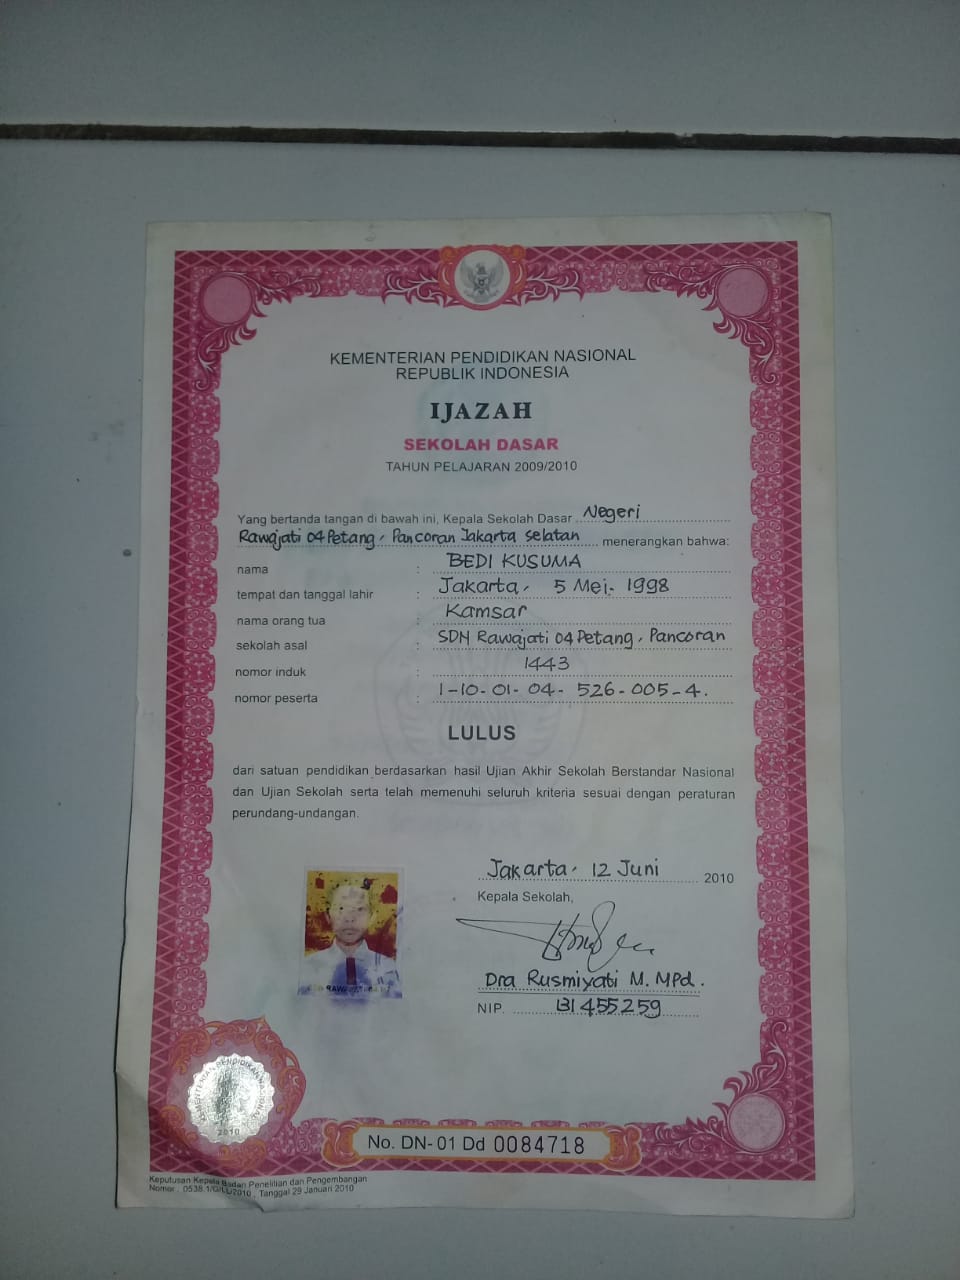 KEMENTERIAN PENDIDIKAN NASIONAL
REPUBLIK INDONESIA
IJAZAH
SEKOLAH DASAR
TAHUN PELAJARAN 2009/2010
Yang bertanda tangan di bawah ini, Kepala Sekolah Dasar Negeri
Rawajati 04 Petang, Pancoran Jakarta Selatan menerangkan bahwa:
nama : BEDI KUSUMA
tempat dan tanggal lahir : Jakarta, 5 Mei 1998
nama orang tua : Kamsar
sekolah asal : SDN Rawajati 04 Petang, Pancoran
nomor induk : 1443
nomor peserta : 1-10-01-04-526-005-4.
LULUS
dari satuan pendidikan berdasarkan hasil Ujian Akhir Sekolah Berstandar Nasional
dan Ujian Sekolah serta telah memenuhi seluruh kriteria sesuai dengan peraturan
perundang-undangan.
Jakarta, 12 Juni 2010
Kepala Sekolah,
Dra Rusmiyati M. MPd.
NIP. 131455259
KEMENTERIAN PENDIDIKAN NASIONAL
2010
No. DN-01 Dd 0084718
Keputusan Kepala Badan Penelitian dan Pengembangan
Nomor : 0538.1/G/LL/2010 , Tanggal 29 Januari 2010